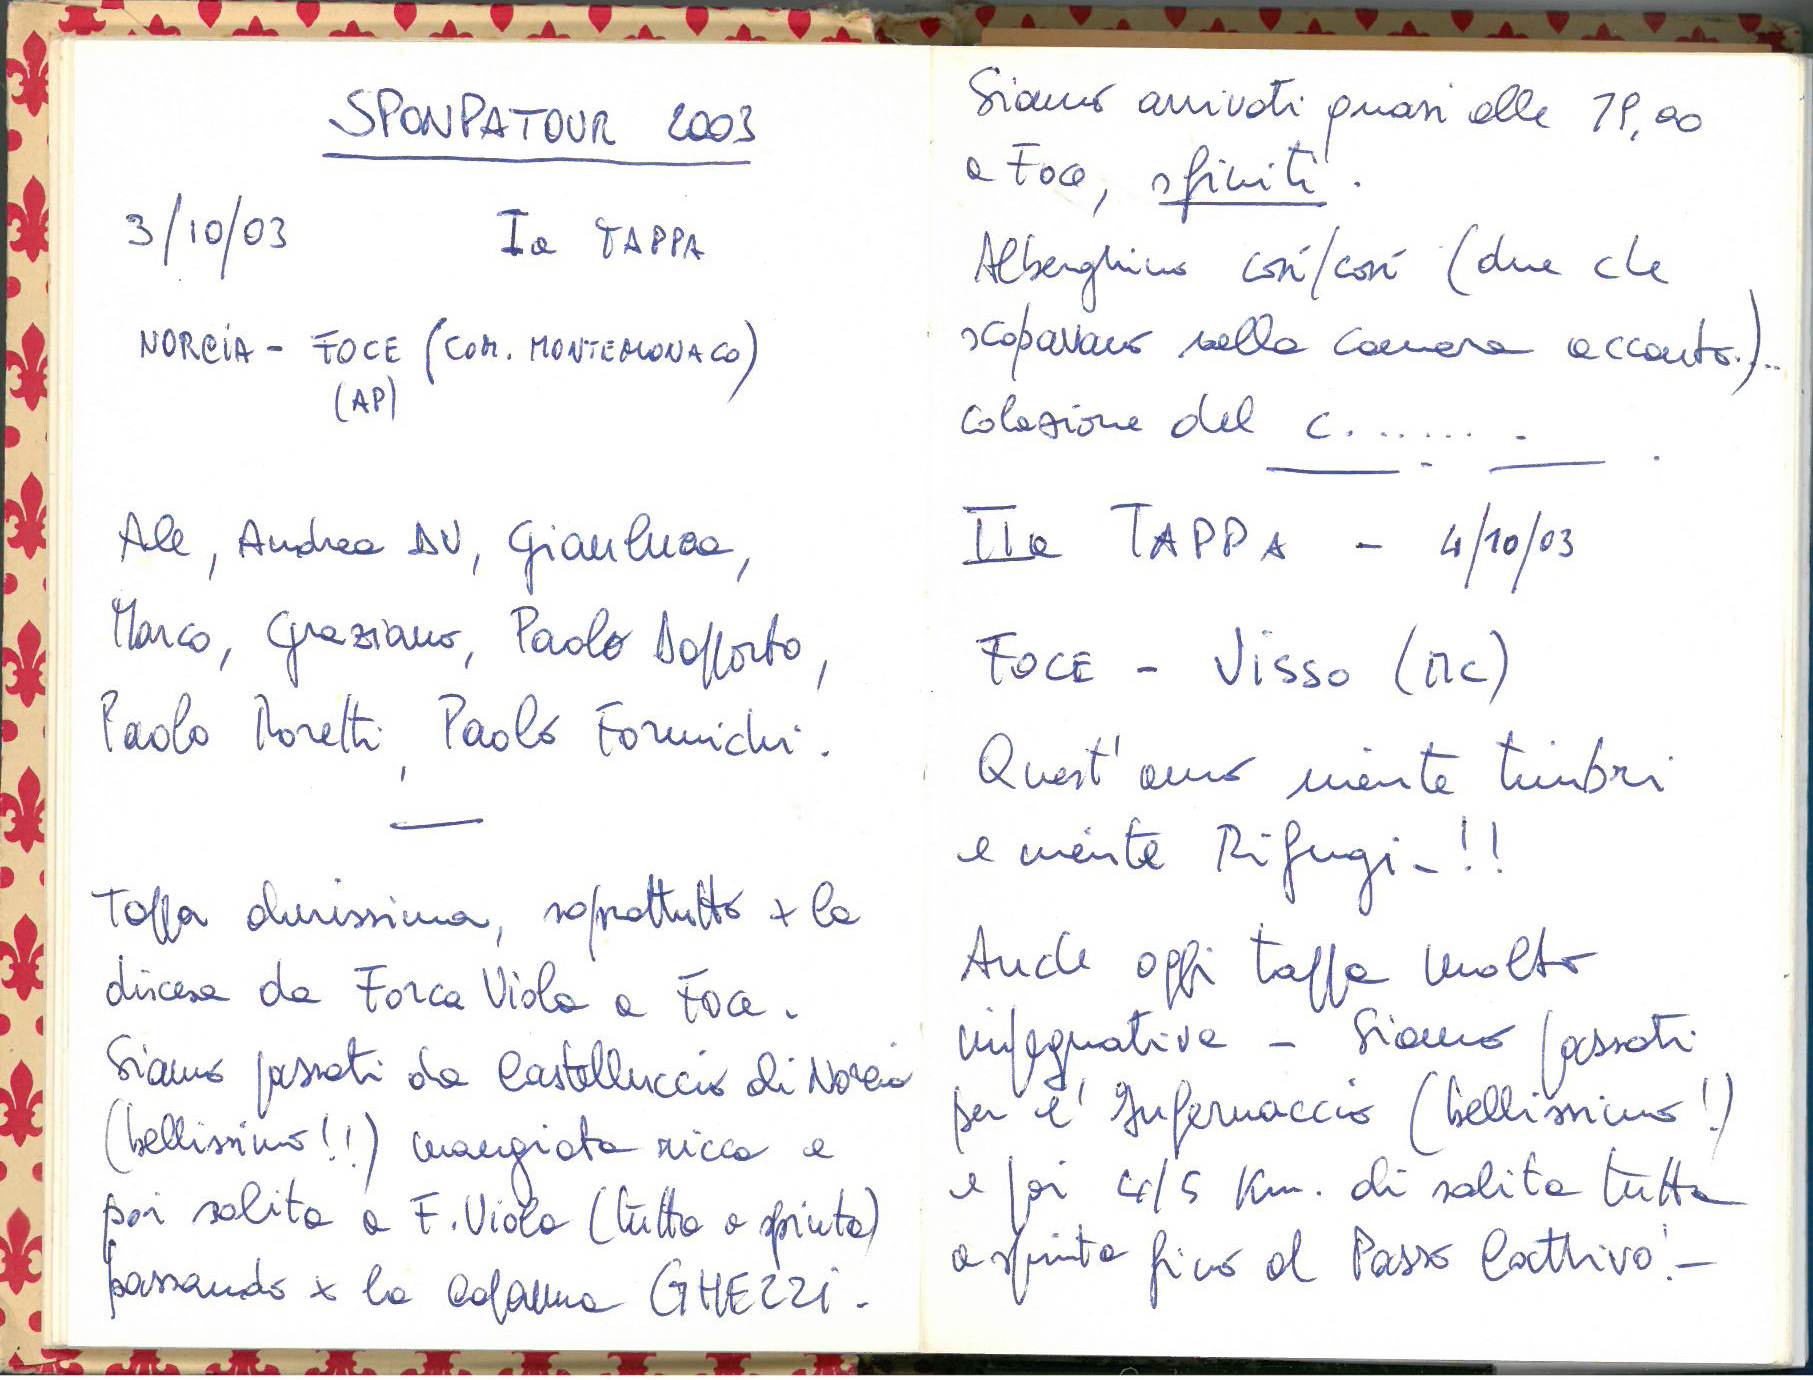 SPONPATOUR 2003
3/10/03 Ia TAPPA
NORCIA - FOCE (COM. MONTEMONACO)
(AP)
Ale, Andrea DV, Gianluca,
Marco, Graziano, Paolo Dapporto,
Paolo Moretti, Paolo Formichi.
Tappa durissima, soprattutto x la
discesa da Forca Viola a Foce.
Siamo passati da Castelluccio di Norcia
(bellissimo!!) mangiata ricca e
poi salita a F. Viola (tutta a spinta)
passando x la capanna GHEZZI.
Siamo arrivati quasi alle 19,00
a Foce, sfiniti.
Alberghino così/così (due che
scopavano nella camera accanto)...
colazione del c.......
IIa TAPPA - 4/10/03
FOCE - VISSO (MC)
Quest'anno niente timbri
e niente Rifugi-!!
Anche oggi tappa molto
impegnativa - Siamo passati
per l'Infernaccio (bellissimo!)
e poi 4/5 Km. di salita tutta
a spinta fino al Passo Cattivo!-